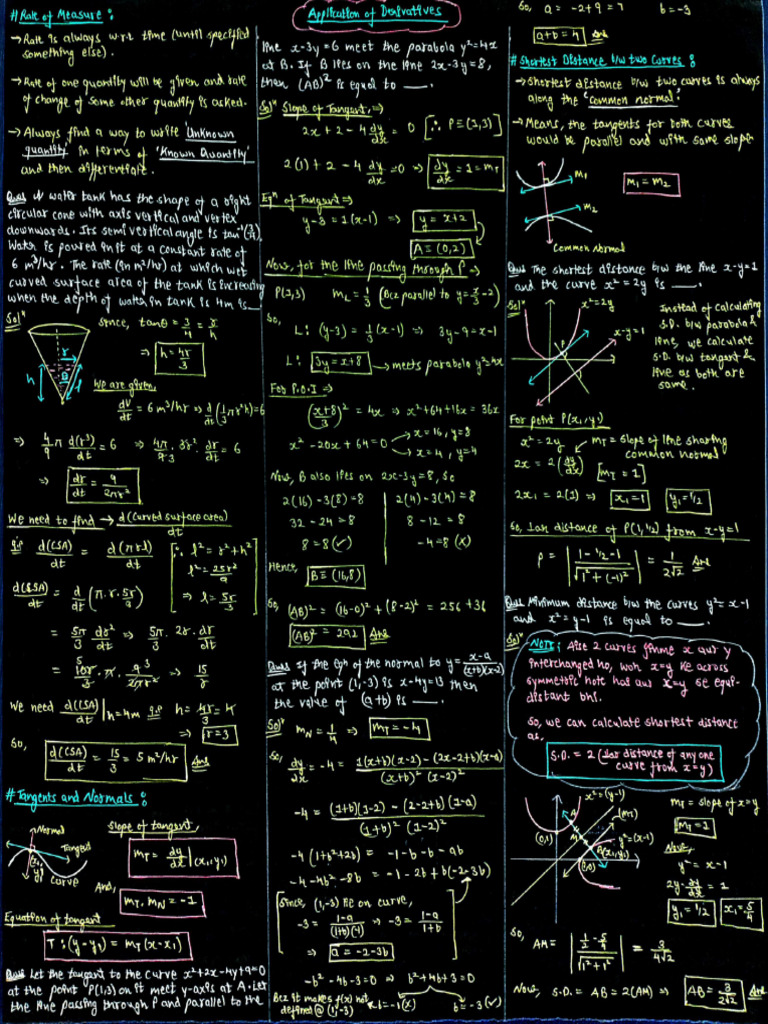 Application of Derivatives
# Rate of Measure :
→ Rate is always w.r.t time (until specified
something else).
→ Rate of one quantity will be given and rate
of change of some other quantity is asked.
→ Always find a way to write Unknown
quantity in terms of 'Known Quantity'
and then differentiate.
Ques A water tank has the shape of a right
circular cone with axis vertical and vertex
downwards. Its semi vertical angle is tan⁻¹(3/4).
Water is poured in it at a constant rate of
6 m³/hr. The rate (in m²/hr) at which wet
curved surface area of the tank is increasing
when the depth of water in tank is 4m is
Solⁿ
since, tanθ = 3/4 = r/h
⇒ h = 4r/3
h
r
θ
l
We are given
dV/dt = 6 m³/hr ⇒ d/dt (1/3 πr²h) = 6
⇒ 4/9 π d(r³)/dt = 6 ⇒ 4π/9 · 3r² · dr/dt = 6
⇒ dr/dt = 9/2πr²
We need to find → d(curved surface area)/dt
i.e d(CSA)/dt = d(πrl)/dt
∵ l² = r² + h²
l² = 25r²/9
⇒ l = 5r/3
d(CSA)/dt = d/dt (π·r·5r/3)
= 5π/3 dr²/dt ⇒ 5π/3 · 2r · dr/dt
= 10r/3 · π · 9/2πr² ⇒ 15/r
We need d(CSA)/dt | h=4m i.e h = 4r/3 = 4
⇒ r=3
So, d(CSA)/dt = 15/3 = 5 m²/hr Ans
# Tangents and Normals :
Normal
Tangent
(x₁, y₁)
Curve
Slope of tangent
m_T = dy/dx | (x₁, y₁)
And,
m_T · m_N = -1
Equation of tangent
T : (y-y₁) = m_T (x-x₁)
Ques Let the tangent to the curve x²+2x-4y+9=0
at the point P(1,3) on it meet y-axis at A. Let
the line passing through P and parallel to the
line x-3y=6 meet the parabola y²=4x
at B. If B lies on the line 2x-3y=8,
then (AB)² is equal to ___.
Solⁿ Slope of Tangent ⇒
2x + 2 - 4 dy/dx = 0 [∵ P≡(1,3)]
2(1) + 2 - 4 dy/dx = 0 ⇒ dy/dx = 1 = m_T
Eqⁿ of Tangent ⇒
y-3 = 1(x-1) ⇒ y = x+2
A ≡ (0,2)
Now, for the line passing through P ⇒
P(1,3) m_L = 1/3 (Bcz parallel to y = x/3 - 2)
So,
L : (y-3) = 1/3 (x-1) ⇒ 3y-9 = x-1
L : 3y = x+8 → meets parabola y²=4x
For P.O.I ⇒
(x+8/3)² = 4x ⇒ x²+64+16x = 36x
x² - 20x + 64 = 0 → x=16, y=8
→ x=4, y=4
Now, B also lies on 2x-3y=8, so
2(16) - 3(8) = 8
32 - 24 = 8
8 = 8 (✓)
2(4) - 3(4) = 8
8 - 12 = 8
-4 = 8 (x)
Hence,
B ≡ (16,8)
So, (AB)² = (16-0)² + (8-2)² = 256 + 36
(AB)² = 292 Ans
Ques If the eqn of the normal to y = x-a/(x+b)(x-2)
at the point (1,-3) is x-4y=13 then
the value of (a+b) is ___.
Solⁿ m_N = 1/4 ⇒ m_T = -4
So, dy/dx = -4 = 1(x+b)(x-2) - (2x-2+b)(x-a)/(x+b)² (x-2)²
-4 = (1+b)(1-2) - (2-2+b)(1-a)/(1+b)² (1-2)²
-4(1+b²+2b) = -1-b-b-ab
-4-4b²-8b = -1-2b+b(-2-3b)
Since, (1,-3) lie on curve,
-3 = 1-a/(1+b)(-1) ⇒ -3 = 1-a/1+b
⇒ a = -2-3b
-b² - 4b - 3 = 0 ⇒ b²+4b+3 = 0
Bcz it makes f(x) not
defined @ (1,-3)
b = -1 (x)
b = -3 (✓)
So, a = -2+9 = 7 b = -3
a+b = 4 Ans
# Shortest Distance b/w two Curves :
→ Shortest distance b/w two curves is always
along the 'common normal'
→ Means, the tangents for both curves
would be parallel and with same slope
m₁
m₂
Common Normal
m₁ = m₂
Ques The shortest distance b/w the line x-y=1
and the curve x²=2y is ___.
Solⁿ
x²=2y
x-y=1
P
Instead of calculating
S.D. b/w parabola &
line, we calculate
S.D. b/w tangent &
line as both are
same.
For point P(x₁, y₁)
x² = 2y
2x = 2 (dy/dx)
m_T = slope of line sharing
common normal
[m_T = 1]
2x₁ = 2(1) ⇒ x₁=1 y₁=1/2
So, ⊥ar distance of P(1,1/2) from x-y=1
p = |1-1/2-1/√1²+(-1)²| = 1/2√2 Ans
Ques Minimum distance b/w the curves y² = x-1
and x² = y-1 is equal to ___.
Solⁿ
NOTE : Aise 2 curves jinme x aur y
interchanged ho, woh x=y ke across
symmetric hote hai aur x=y se equi-
distant bhi.
So, we can calculate shortest distance
as,
S.D. = 2 (⊥ar distance of any one
curve from x=y)
x²=(y-1)
(m_T)
y²=(x-1)
(0,1)
(1,0)
A
M
(x₁, y₁)
m_T = slope of x=y
m_T = 1
Now,
y² = x-1
2y · dy/dx = 1
y₁ = 1/2 x₁ = 5/4
So,
AM = |1/2 - 5/4/√1²+1²| = 3/4√2
Now, S.D. = AB = 2(AM) ⇒ AB = 3/2√2 Ans